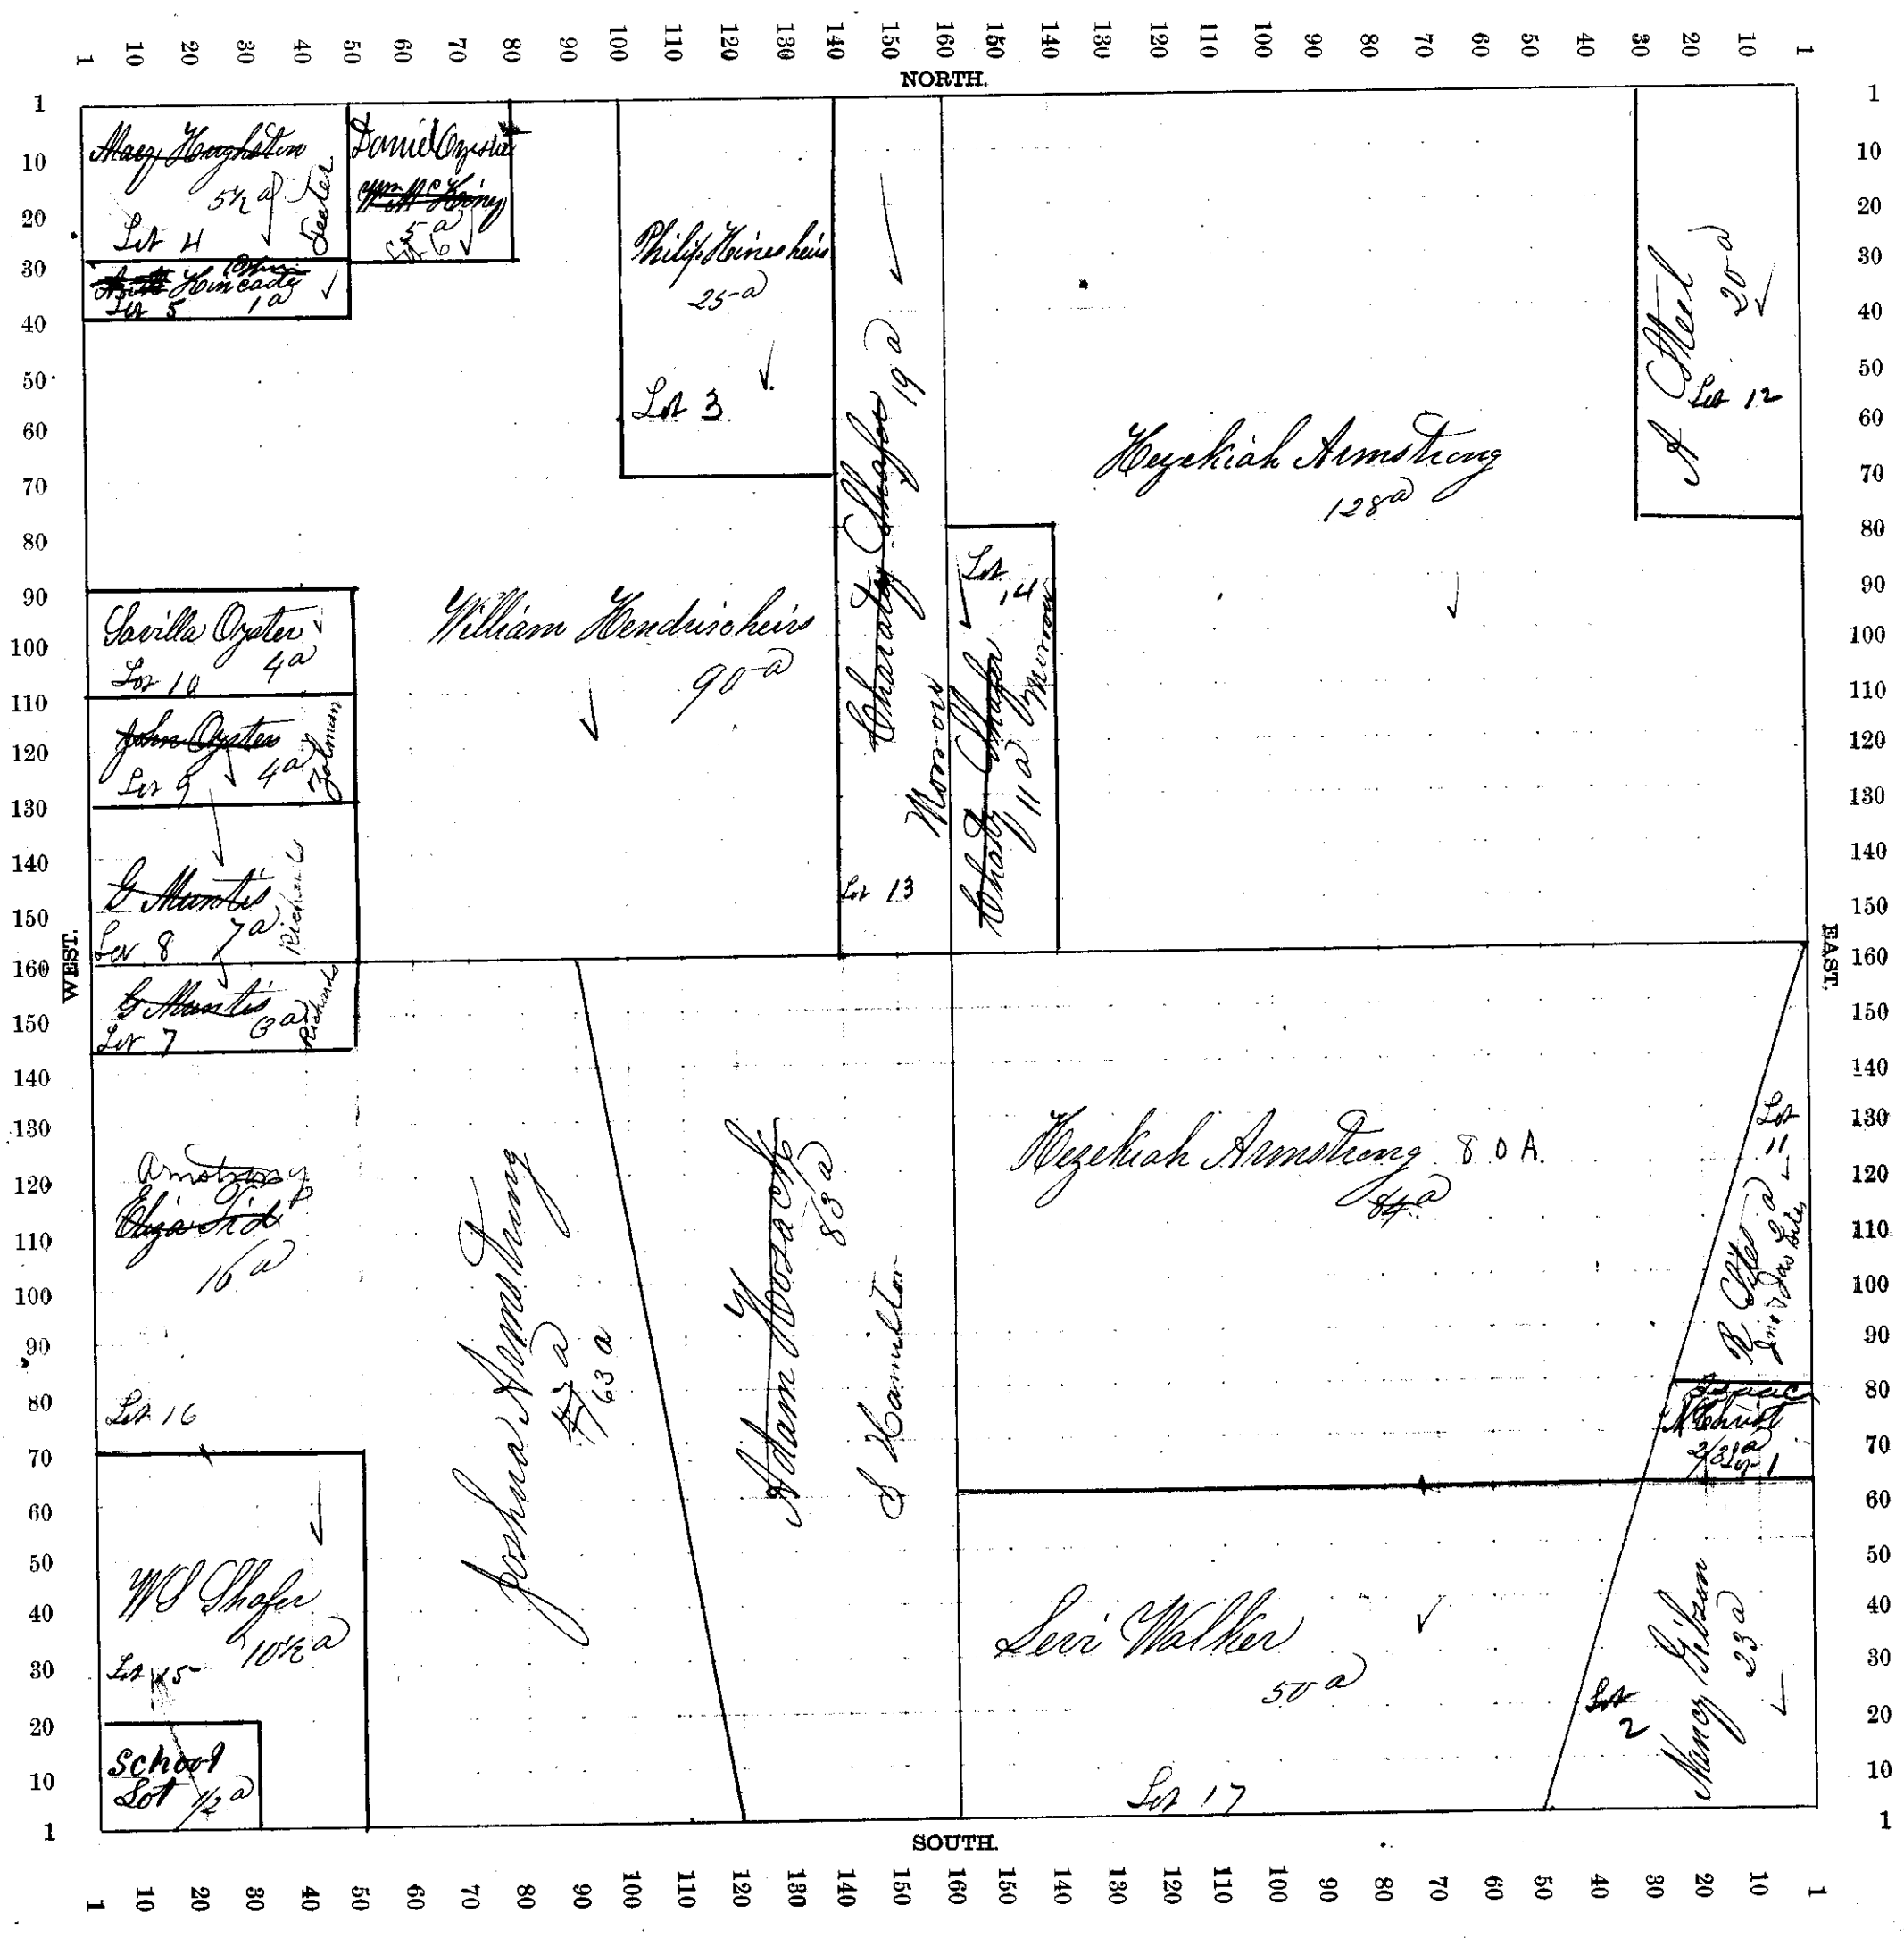 1 10 20 30 40 50 60 70 80 90 100 110 120 130 140 150 160 150 140 130 120 110 100 90 80 70 60 50 40 30 20 10 1
NORTH.
1 10 20 30 40 50 60 70 80 90 100 110 120 130 140 150 160 150 140 130 120 110 100 90 80 70 60 50 40 30 20 10 1
WEST.
Mary Hughston
5 1/2 a
Lot 4
Daniel Oyster
Wm McKiney
5 a
Lot 6
Kincade
Lot 5 1 a
Philip Heines heirs
25 a
Lot 3
Charaty Shafer 19 a
Morrow
Lot 13
Lot 14
Charaty Shafer
11 a Morrow
Hezekiah Armstrong
128 a
A Steel
20 a
Lot 12
William Hendrixheirs
90 a
Savilla Oyster
4 a
Lot 10
John Oyster
Lot 9 4 a
Zolman
G Muntis
7 a
Lot 8
Richards
G Muntis
3 a
Lot 7
Richards
Armstrong
Eliza
16 a
Lot 16
W S Shafer
10 1/2 a
Lot 15
School
Lot 1/2 a
Joshua Armstrong
63 a
Adam Hosack
83 a
S Hamilton
Hezekiah Armstrong 80 A.
84 a
Lot 11
R Sites
Isaac
2/3 a Lot 1
Levi Walker
50 a
Lot 17
Lot 2
Nancy Gibson
23 a
EAST,
1 10 20 30 40 50 60 70 80 90 100 110 120 130 140 150 160 150 140 130 120 110 100 90 80 70 60 50 40 30 20 10 1
SOUTH.
1 10 20 30 40 50 60 70 80 90 100 110 120 130 140 150 160 150 140 130 120 110 100 90 80 70 60 50 40 30 20 10 1